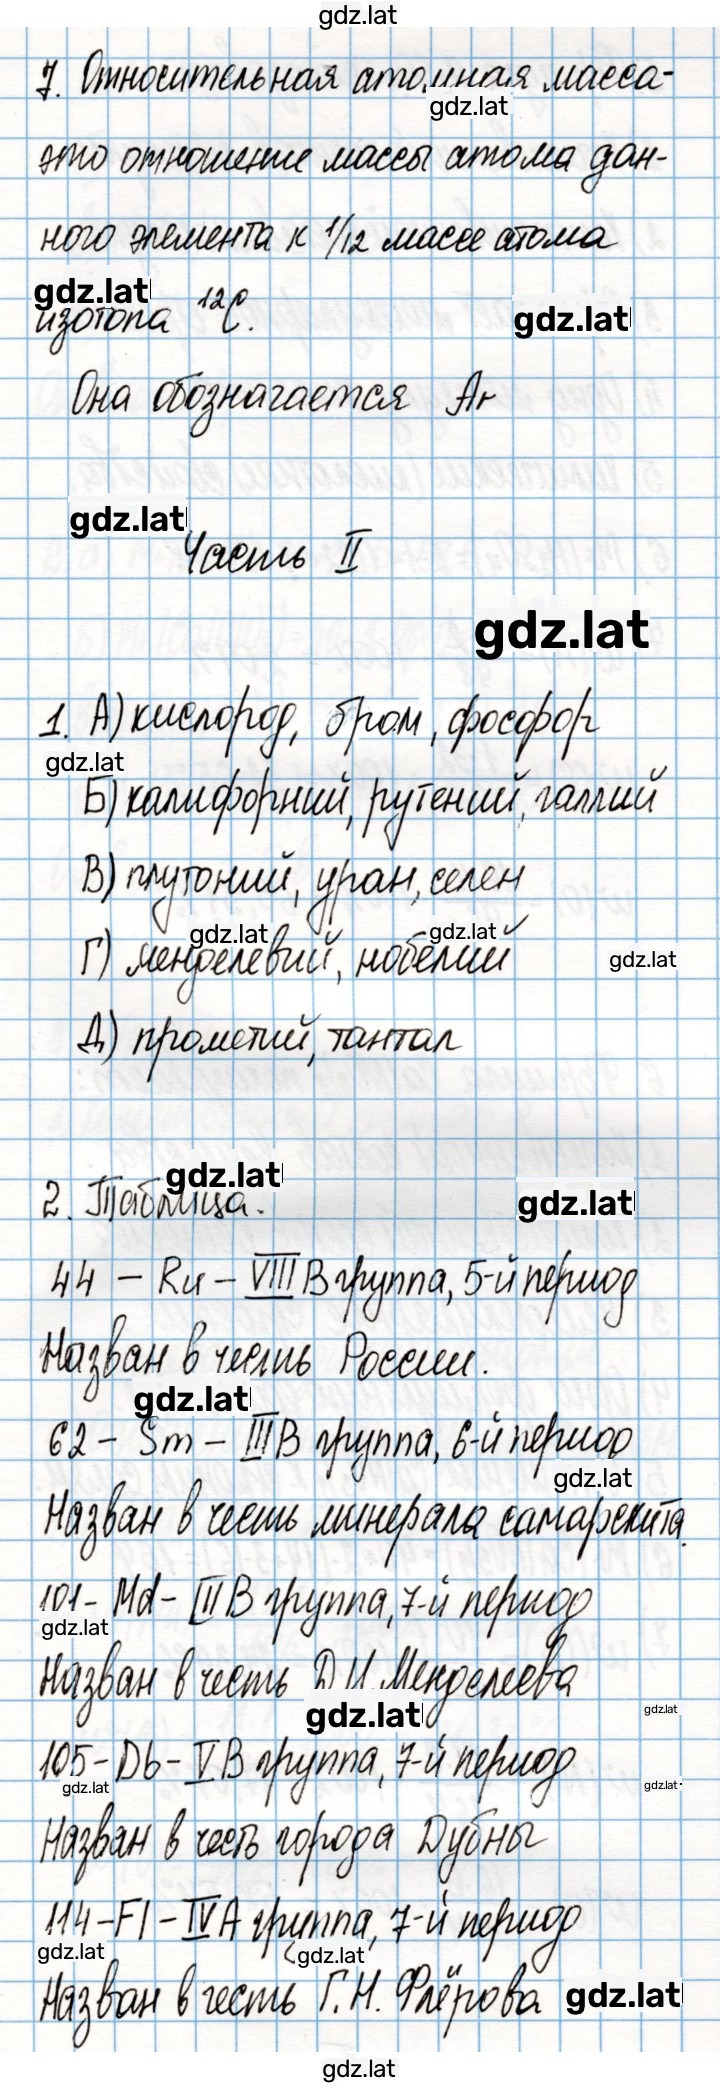 gdz.lat
7. Относительная атомная масса-
gdz.lat
это отношение массы атома дан-
ного элемента к 1/12 массе атома
gdz.lat
изотопа ¹²C.
gdz.lat
Она обозначается Ar
gdz.lat
Часть II
gdz.lat
1. А) кислород, бром, фосфор
gdz.lat
Б) калифорний, рутений, галлий
В) плутоний, уран, селен
gdz.lat gdz.lat
Г) менделевий, нобелий
gdz.lat
Д) прометий, тантал
gdz.lat
2. Таблица.
gdz.lat
44 – Ru – VIII B группа, 5-й период
Назван в честь России.
gdz.lat
62 – Sm – III B группа, 6-й период
gdz.lat
Назван в честь минерала самарскита.
101 – Md – III B группа, 7-й период
gdz.lat
Назван в честь Д.И. Менделеева
gdz.lat gdz.lat
105 – Db – V B группа, 7-й период
gdz.lat gdz.lat
Назван в честь города Дубны
114 – Fl – IV A группа, 7-й период
gdz.lat gdz.lat
Назван в честь Г.Н. Флёрова
gdz.lat
gdz.lat